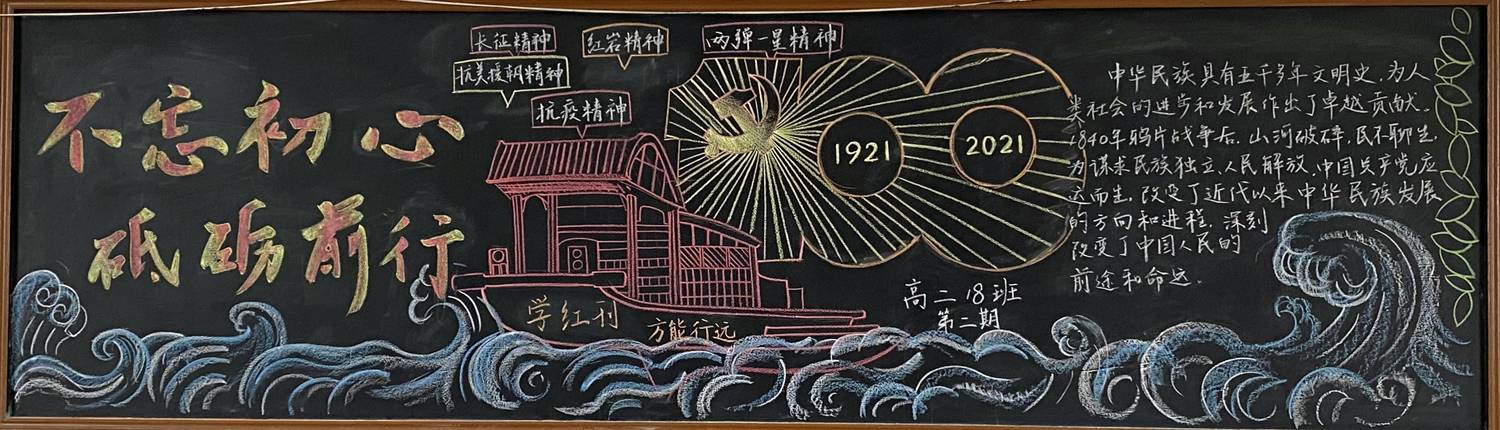 不忘初心
砥砺前行
长征精神
红岩精神
两弹一星精神
抗美援朝精神
抗疫精神
1921
2021
学红刊
方能行远
高二18班
第二期
中华民族具有五千多年文明史，为人
类社会的进步和发展作出了卓越贡献。
1840年鸦片战争后，山河破碎，民不聊生，
为谋求民族独立、人民解放，中国共产党应
运而生，改变了近代以来中华民族发展
的方向和进程，深刻
改变了中国人民的
前途和命运。